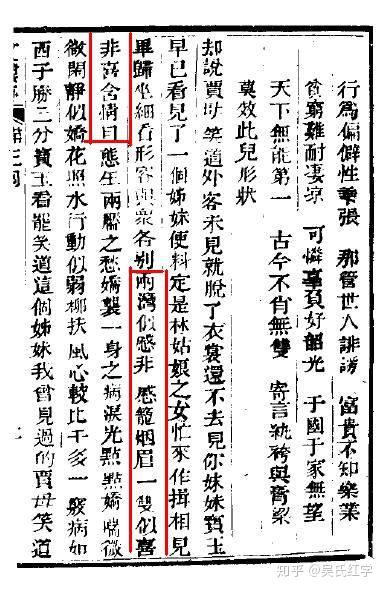 行為偏僻性乖張　那管世人誹謗　富貴不知樂業
貧窮難耐凄凉　可憐辜負好韶光　于國于家無望
天下無能第一　古今不肖無雙　寄言紈袴與膏粱
莫效此兒形狀
却說賈母笑道外客未見就脫了衣裳還不去見你妹妹寶玉
早已看見了一個姊妹便料定是林姑娘之女忙來作揖相見
畢歸坐細看形容與衆各別兩灣似蹙非　蹙籠烟眉一雙似喜
非喜含情目態生兩靨之愁嬌襲一身之病淚光點點嬌喘微
微閑靜似嬌花照水行動似弱柳扶風心較比干多一竅病如
西子勝三分寶玉看罷笑道這個姊妹我曾見過的賈母笑道
第三回
知乎 @吴氏红字